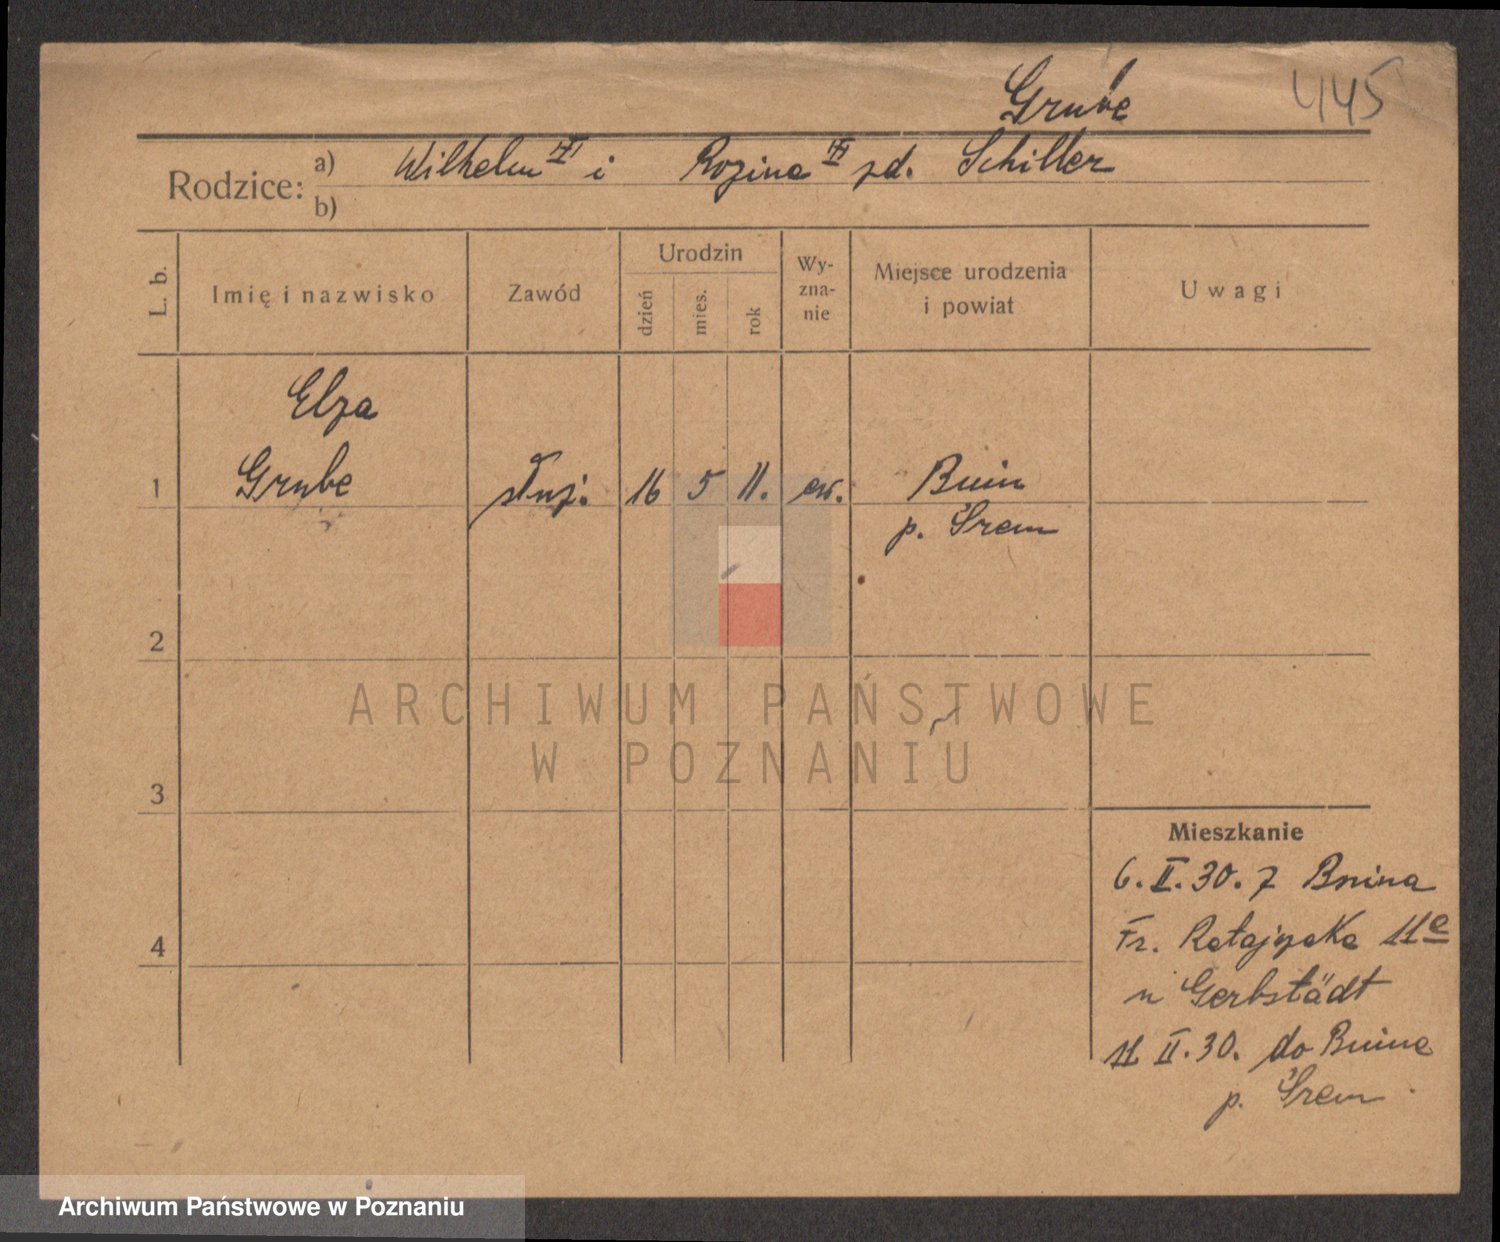 Grube 445
Rodzice: a) Wilhelm i Rozina zd. Schiller
b)
L. b. Imię i nazwisko Zawód Urodzin Wyznanie Miejsce urodzenia i powiat Uwagi
dzień mies. rok
Elza
1 Grube służ. 16 5 11. ew. Bnin
p. Śrem
2
ARCHIWUM PAŃSTWOWE
W POZNANIU
3
Mieszkanie
6. II. 30. z Bnina
4 Fr. Ratajczaka 11a
u Gerbstädt
11 II. 30. do Bnina
p. Śrem
Archiwum Państwowe w Poznaniu